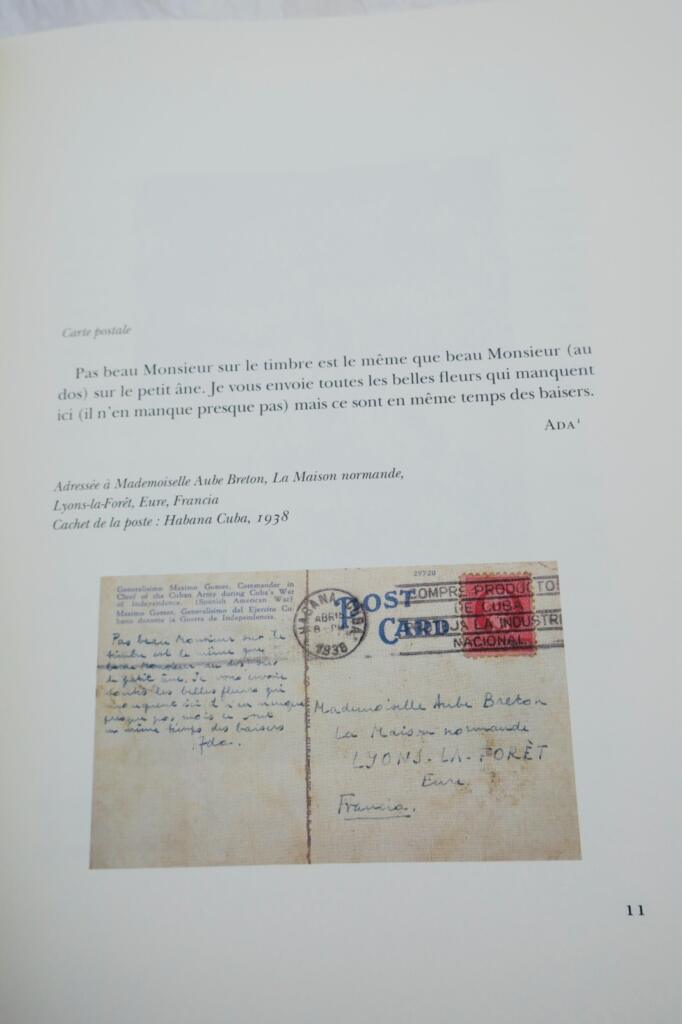 Carte postale
Pas beau Monsieur sur le timbre est le même que beau Monsieur (au
dos) sur le petit âne. Je vous envoie toutes les belles fleurs qui manquent
ici (il n'en manque presque pas) mais ce sont en même temps des baisers.
ADA¹
Adressée à Mademoiselle Aube Breton, La Maison normande,
Lyons-la-Forêt, Eure, Francia
Cachet de la poste : Habana Cuba, 1938
29720
Generalisimo Maximo Gomez, Commander in
Chief of the Cuban Army during Cuba's War
of Independence. (Spanish American War)
Maximo Gomez, Generalisimo del Ejercito Cu-
bano durante la Guerra de Independencia.
POST
CARD
HABANA CUBA
ABR
8-PM
1938
COMPRE PRODUCTO
DE CUBA
LA INDUSTRI
NACIONAL
Pas beau Monsieur sur le
timbre est le même que
beau Monsieur au dos sur
le petit âne. Je vous envoie
toutes les belles fleurs qui
manquent ici il n'en manque
presque pas mais ce sont
en même temps des baisers
Ada.
Mademoiselle Aube Breton
La Maison normande
LYONS-LA-FORÊT
Eure
Francia.
11